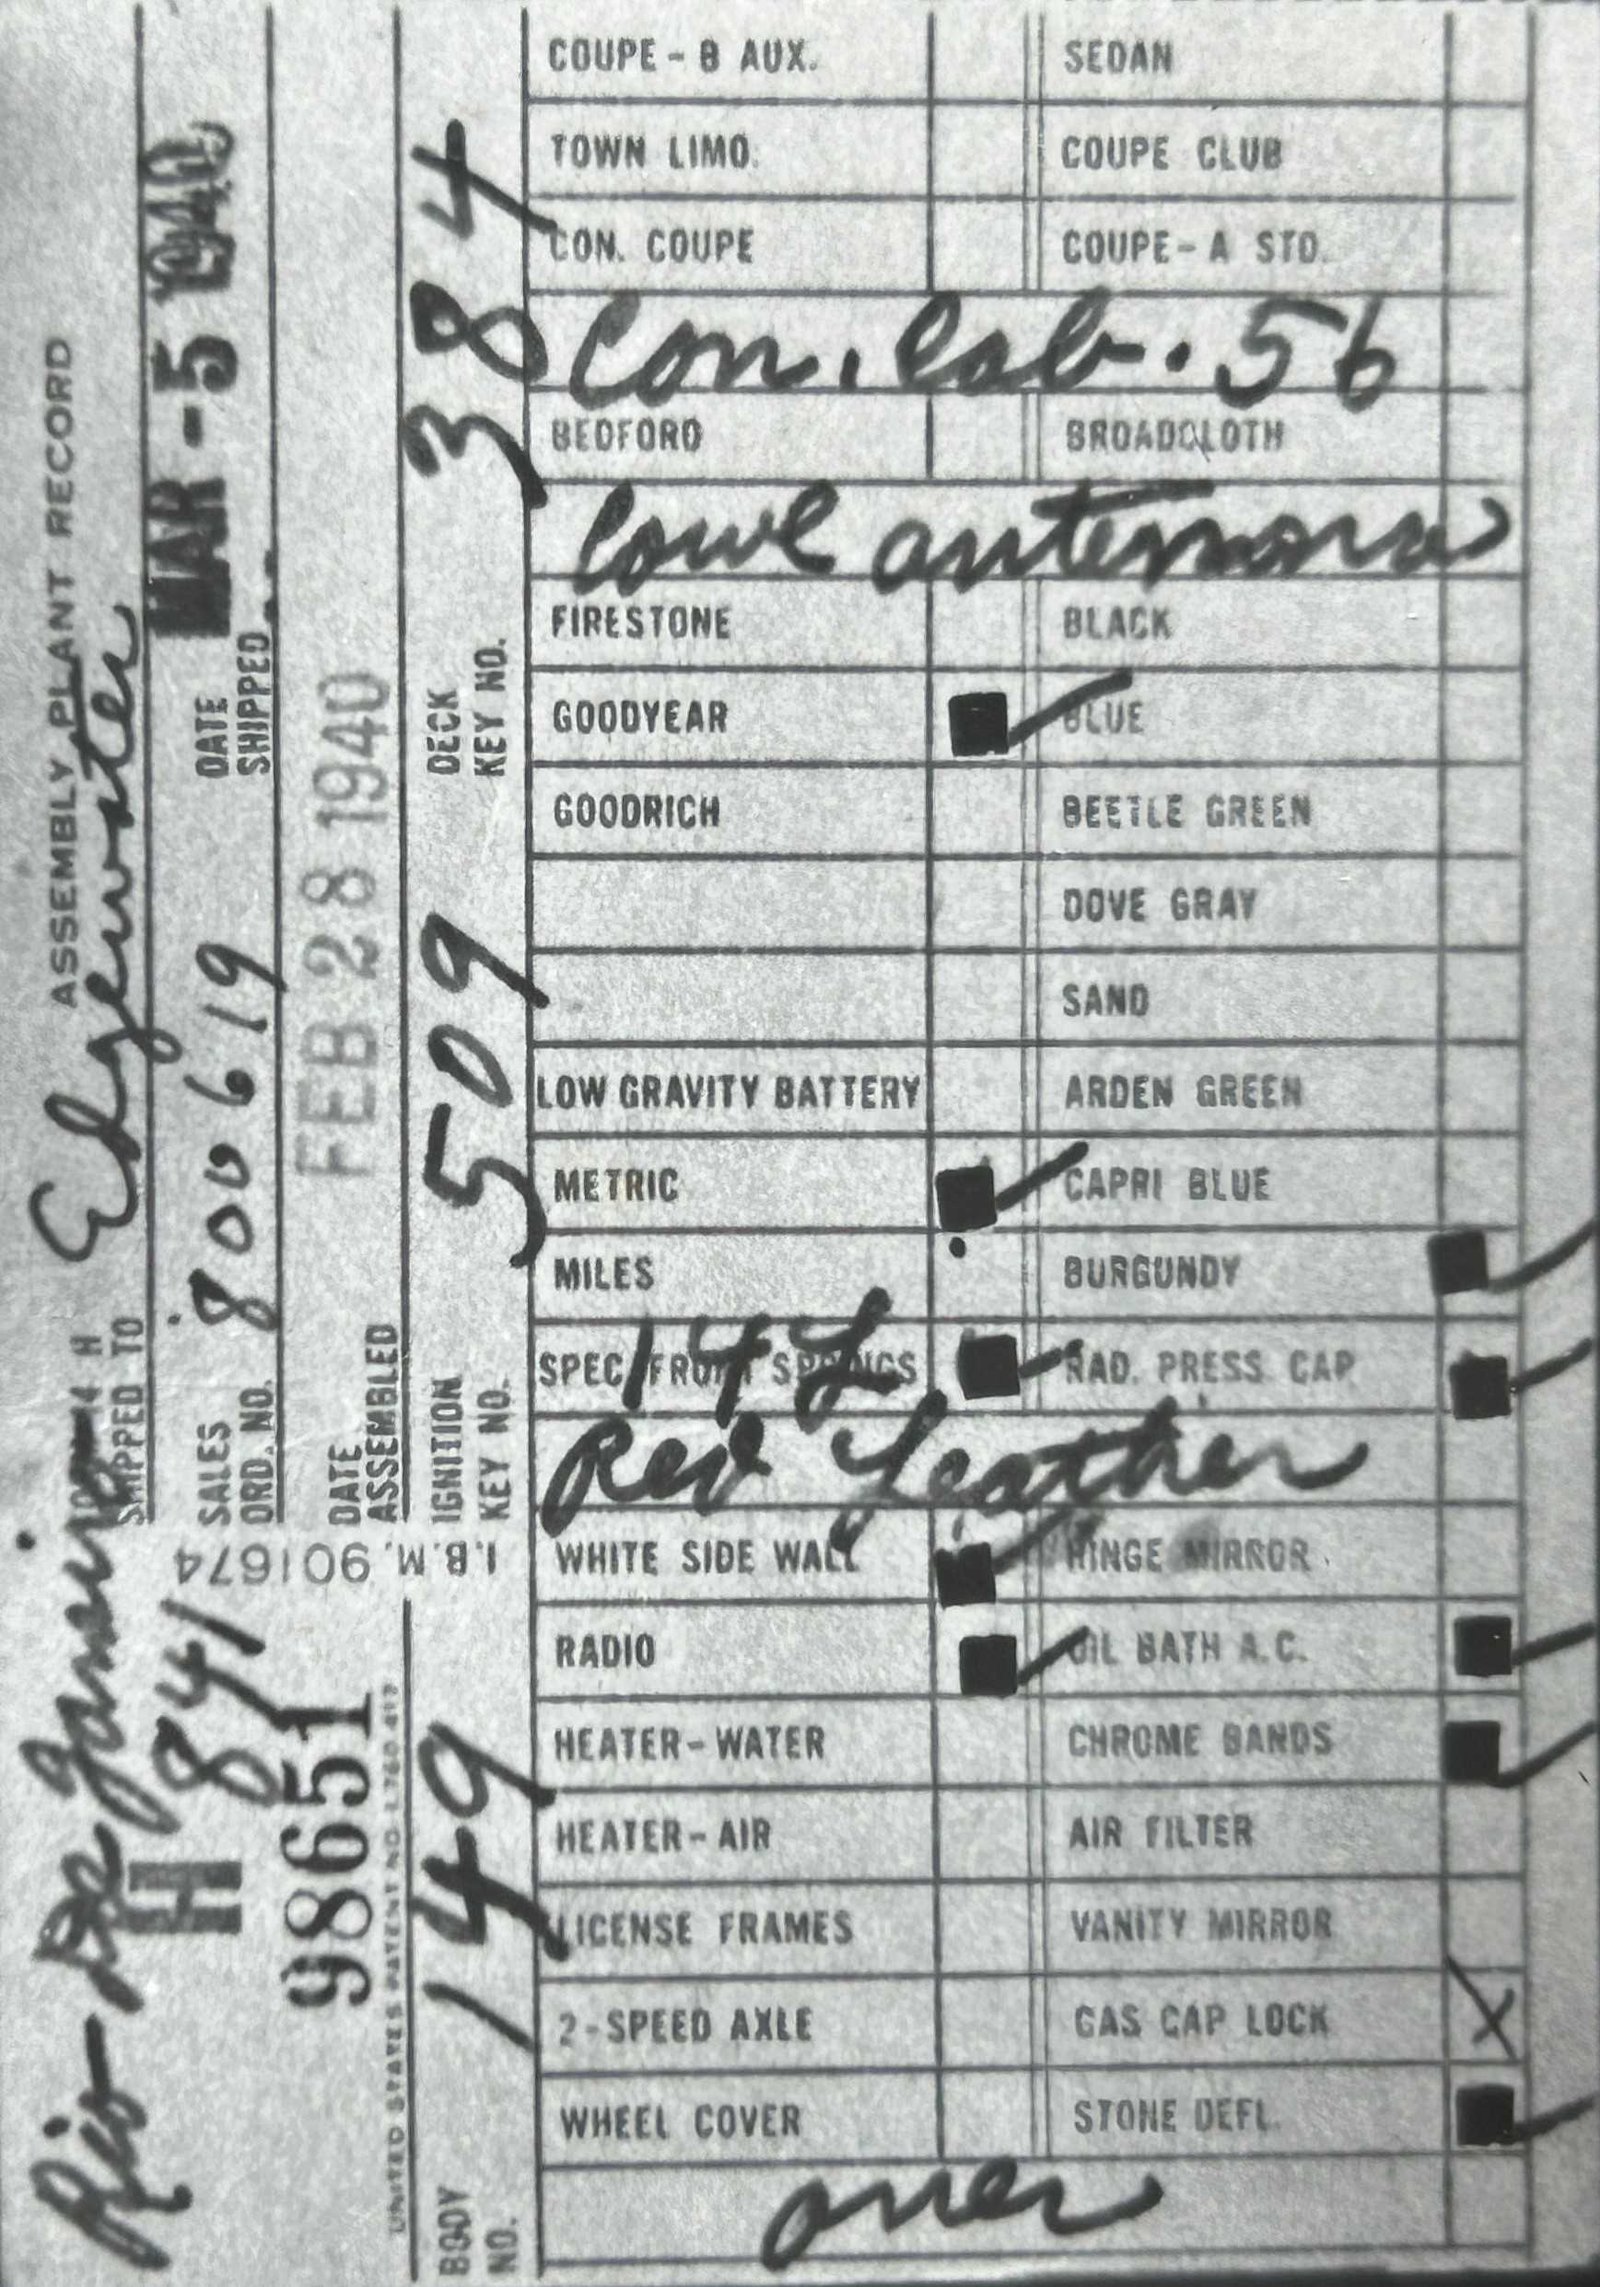 ASSEMBLY PLANT RECORD
Rio De Janeiro
H
SHIPPED TO Edgewater
H 841
98651
SALES ORD. NO. 800619
DATE SHIPPED MAR - 5 1940
DATE ASSEMBLED FEB 28 1940
I.B.M. 901674
UNITED STATES PATENT NO. 1,760,417
BODY NO. 149
IGNITION KEY NO. 509
DECK KEY NO. 384
COUPE - B AUX. SEDAN
TOWN LIMO. COUPE CLUB
CON. COUPE COUPE - A STD.
Con. Cab. 56
BEDFORD BROADCLOTH
Cowl antenna
FIRESTONE BLACK
GOODYEAR BLUE
GOODRICH BEETLE GREEN
DOVE GRAY
SAND
LOW GRAVITY BATTERY ARDEN GREEN
METRIC CAPRI BLUE
MILES BURGUNDY
SPEC. FRONT SPRINGS RAD. PRESS. CAP
Red Leather
WHITE SIDE WALL HINGE MIRROR
RADIO OIL BATH A.C.
HEATER - WATER CHROME BANDS
HEATER - AIR AIR FILTER
LICENSE FRAMES VANITY MIRROR
2 - SPEED AXLE GAS CAP LOCK X
WHEEL COVER STONE DEFL.
over